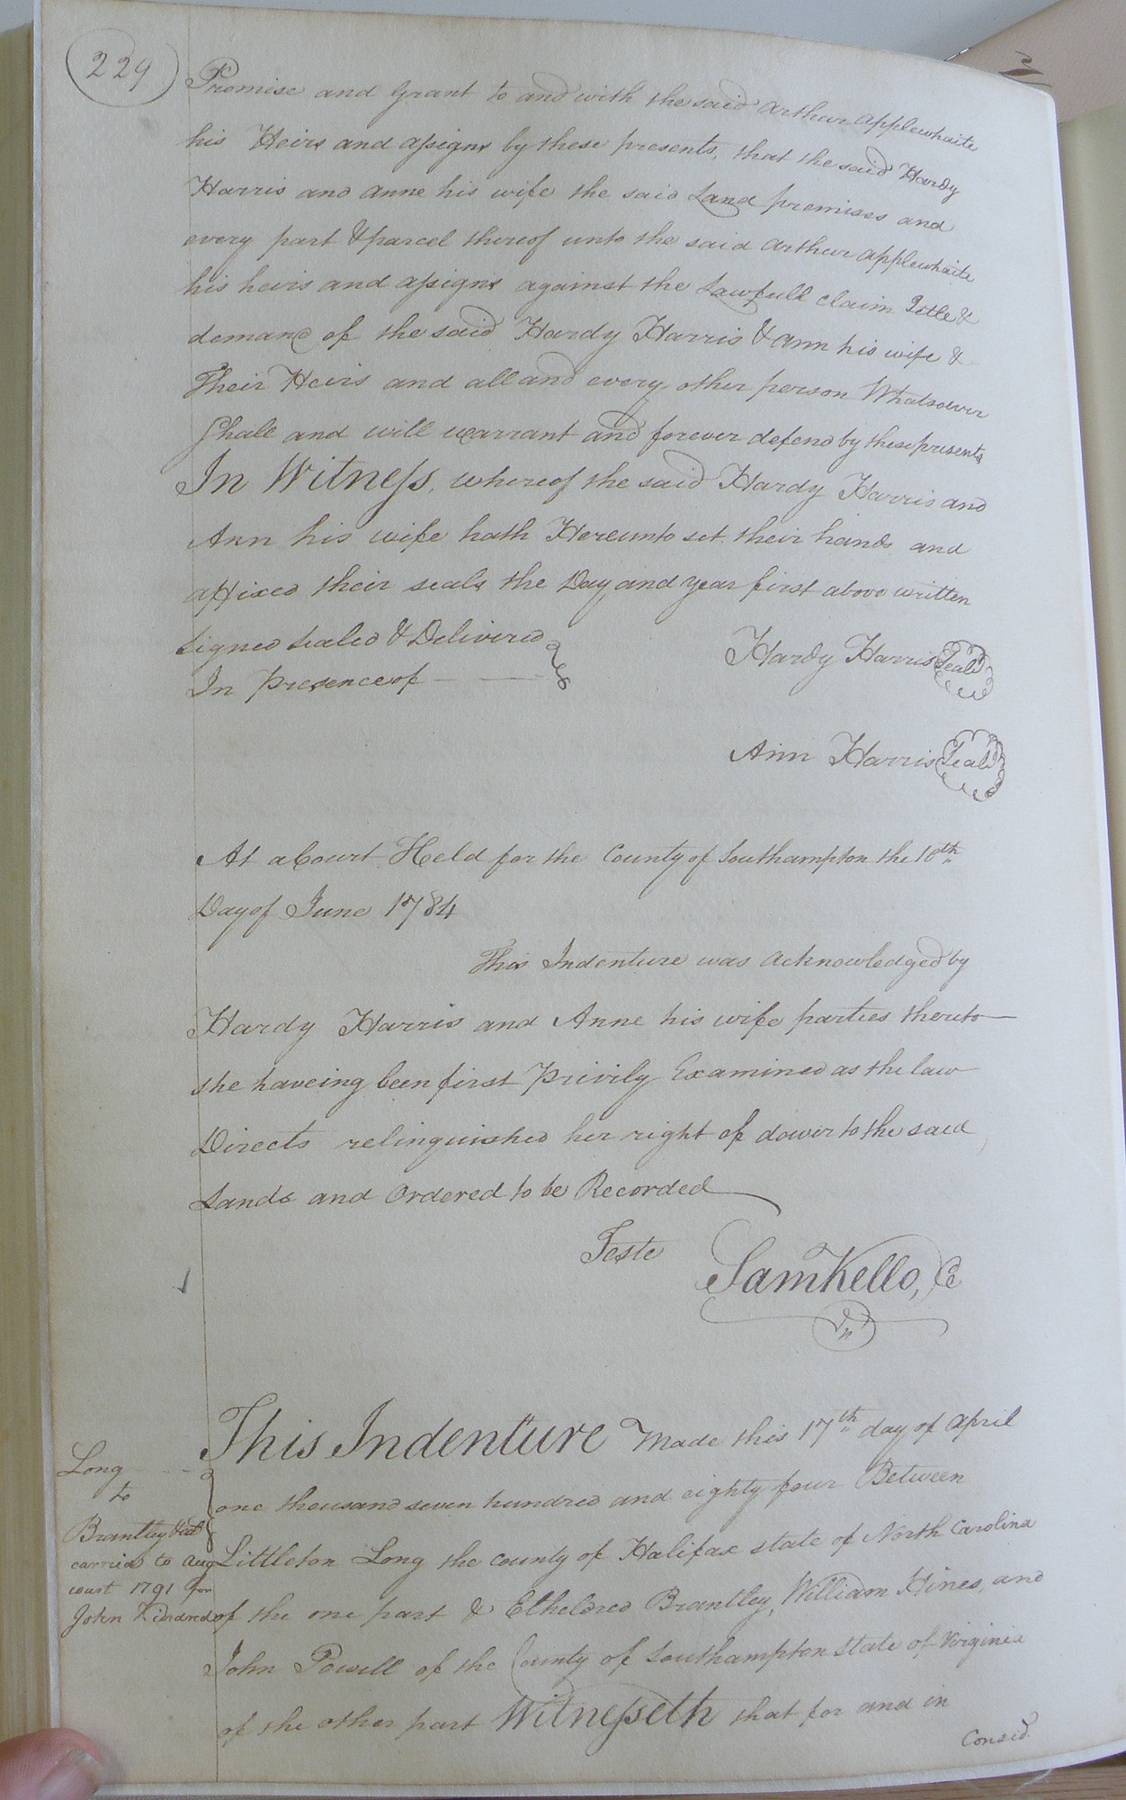 229
Promise and grant to and with the said Arthur Applewhaite
his Heirs and assigns by these presents, that the said Hardy
Harris and Anne his wife the said Land premises and
every part & parcel thereof unto the said Arthur Applewhaite
his heirs and assigns against the Lawfull claim Title &
demand of the said Hardy Harris & Ann his wife &
Their Heirs and all and every other person Whatsoever
Shall and will warrant and forever defend by these presents
In Witness, whereof the said Hardy Harris and
Ann his wife hath Hereunto set their hands and
affixed their seals the Day and year first above written
Signed Sealed & Delivered
In Presence of
Hardy Harris Seal
Ann Harris Seal
At a Court Held for the County of Southampton the 10th
Day of June 1784
This Indenture was acknowledged by
Hardy Harris and Anne his wife parties thereto
she haveing been first Privily Examined as the law
Directs relinquished her right of dower to the said
Lands and Ordered to be Recorded
Teste
Sam Kello, C
Long
to
Brantley &al
carried to Aug
court 1791 for
John Kindred
This Indenture Made this 17th day of April
one thousand seven hundred and eighty four Between
Littleton Long the county of Halifax state of North Carolina
of the one part & Etheldred Brantley, William Hines, and
John Powell of the County of Southampton state of Virginia
of the other part Witnesseth that for and in
Consid.